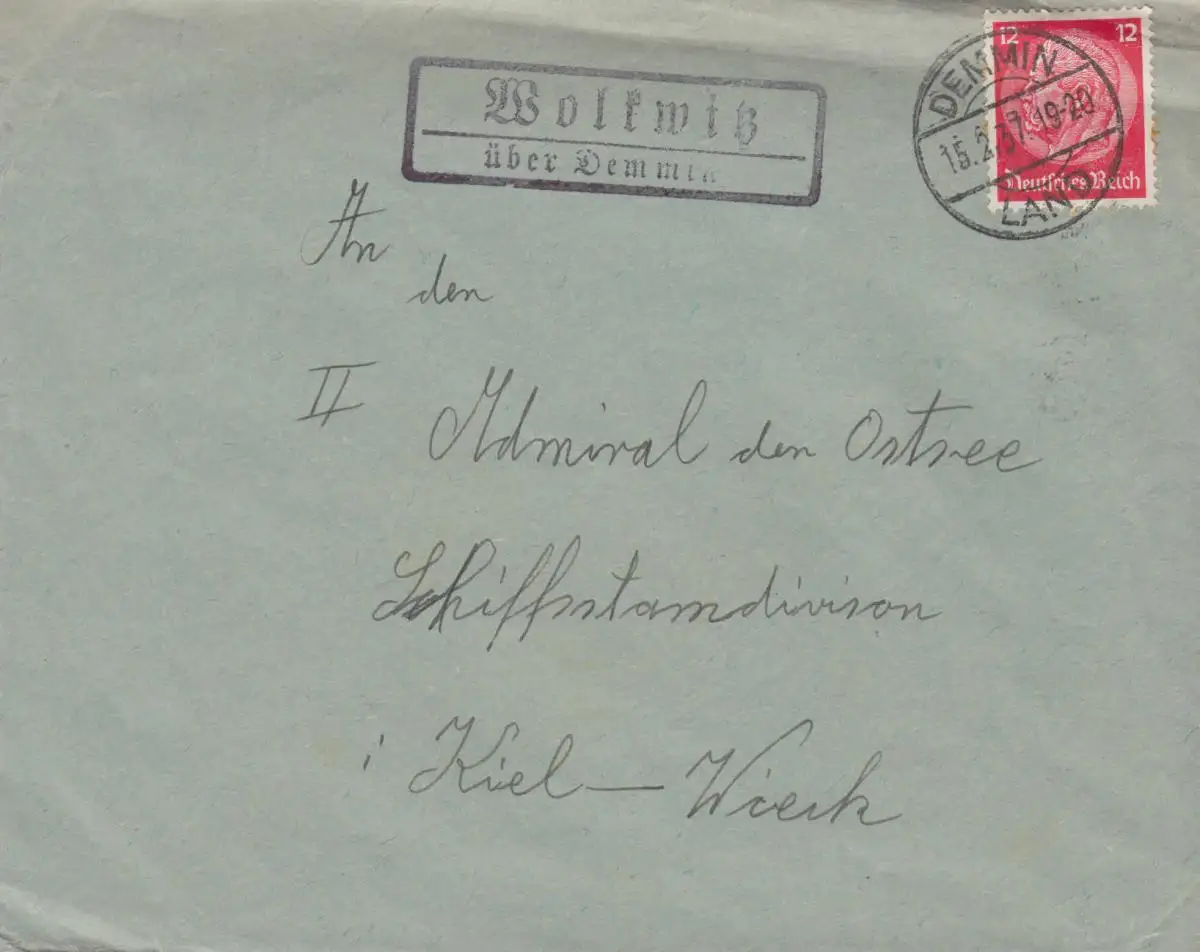 12 12
Deutsches Reich
DEMMIN
15.2.37.19-20
LAND
Wolkwitz
über Demmin
An
den
II Admiral der Ostsee
Schiffsstamdivison
i Kiel — Wieck